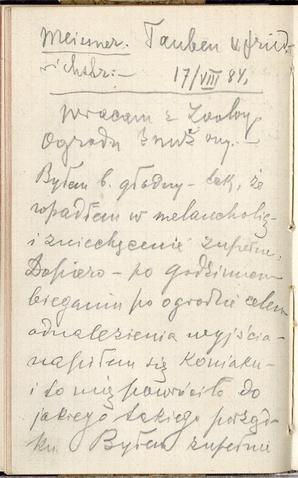 Meissner. Tauben u. Fried-
richstr. –
17/VIII 84.
Wracam z Zoolog.
Ogrodu
Byłem b. głodny – tak, że
wpadłem w melancholię
i zniechęcenie zupełne.
Dopiero – po godzinnem
bieganiu po ogrodzie celem
odnalezienia wyjścia –
napiłem się koniaku –
i to mię powróciło do
jakiego takiego porząd-
ku. Byłem zupełnie